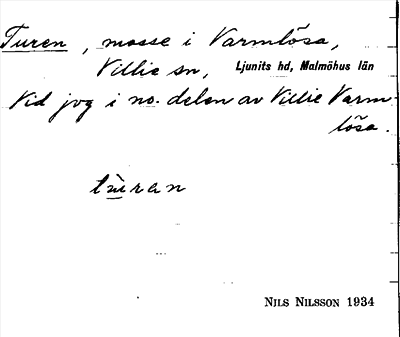 Turen, mosse i Varmlösa,
Villie sn, Ljunits hd, Malmöhus län
Vid jvg i no. delen av Villie Varm-
lösa.
tùran
NILS NILSSON 1934